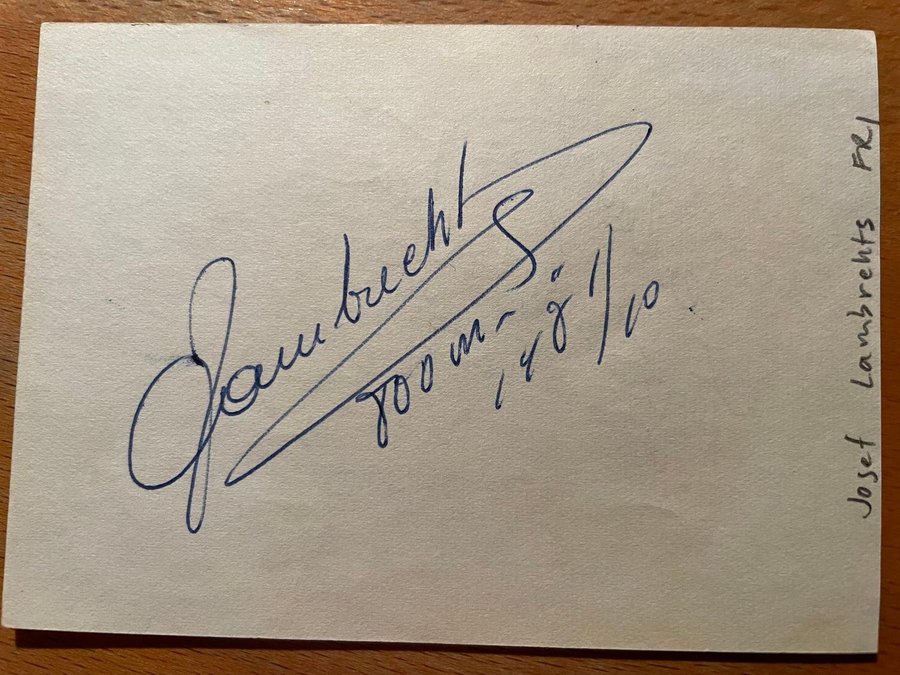 Lambrecht
800 m
1'48"1/10
Josef Lambrehts FR/